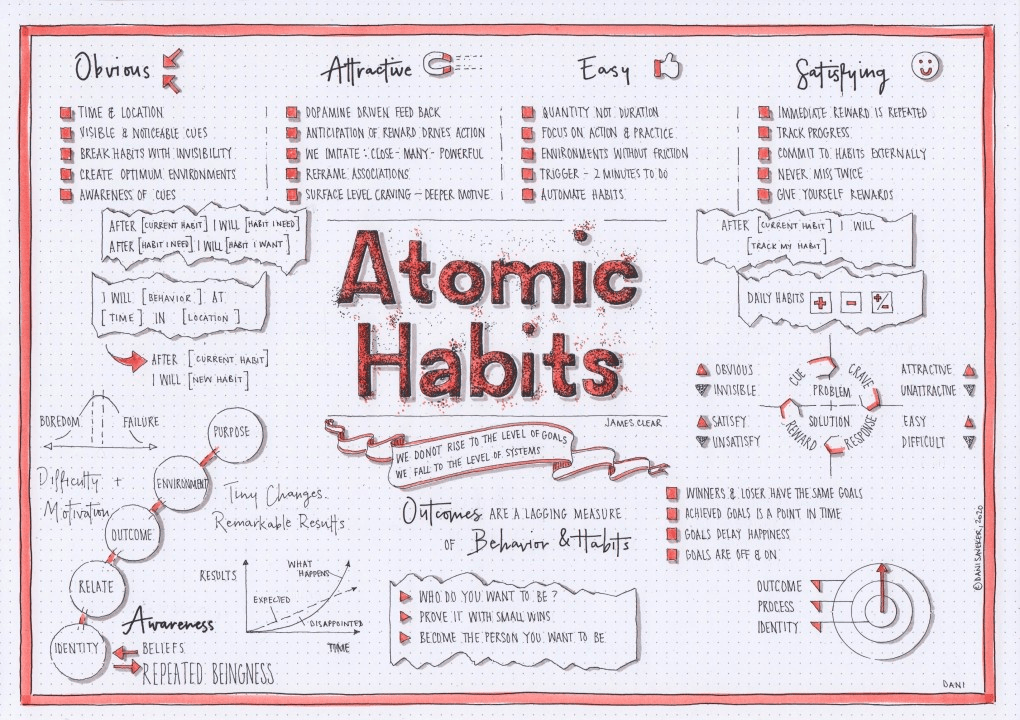 Obvious
TIME & LOCATION
VISIBLE & NOTICEABLE CUES
BREAK HABITS WITH INVISIBILITY
CREATE OPTIMUM ENVIRONMENTS
AWARENESS OF CUES
AFTER [CURRENT HABIT] I WILL [HABIT I NEED]
AFTER [HABIT I NEED] I WILL [HABIT I WANT]
I WILL [BEHAVIOR] AT
[TIME] IN [LOCATION]
AFTER [CURRENT HABIT]
I WILL [NEW HABIT]
Attractive
DOPAMINE DRIVEN FEED BACK
ANTICIPATION OF REWARD DRIVES ACTION
WE IMITATE : CLOSE - MANY - POWERFUL
REFRAME ASSOCIATIONS
SURFACE LEVEL CRAVING - DEEPER MOTIVE
Easy
QUANTITY NOT DURATION
FOCUS ON ACTION & PRACTICE
ENVIRONMENTS WITHOUT FRICTION
TRIGGER - 2 MINUTES TO DO
AUTOMATE HABITS
Satisfying
IMMEDIATE REWARD IS REPEATED
TRACK PROGRESS
COMMIT TO HABITS EXTERNALLY
NEVER MISS TWICE
GIVE YOURSELF REWARDS
AFTER [CURRENT HABIT] I WILL
[TRACK MY HABIT]
DAILY HABITS + - +/-
Atomic
Habits
JAMES CLEAR
WE DO NOT RISE TO THE LEVEL OF GOALS
WE FALL TO THE LEVEL OF SYSTEMS
OBVIOUS
INVISIBLE
SATISFY
UNSATISFY
CUE
CRAVE
PROBLEM
SOLUTION
REWARD
RESPONSE
ATTRACTIVE
UNATTRACTIVE
EASY
DIFFICULT
BOREDOM
FAILURE
Difficulty +
Motivation
PURPOSE
ENVIRONMENT
OUTCOME
RELATE
IDENTITY
Tiny Changes.
Remarkable Results
Awareness
BELIEFS
REPEATED BEINGNESS
RESULTS
WHAT
HAPPENS
EXPECTED
DISAPPOINTED
TIME
Outcomes ARE A LAGGING MEASURE
OF Behavior & Habits
WHO DO YOU WANT TO BE ?
PROVE IT WITH SMALL WINS
BECOME THE PERSON YOU WANT TO BE
WINNERS & LOSER HAVE THE SAME GOALS
ACHIEVED GOALS IS A POINT IN TIME
GOALS DELAY HAPPINESS
GOALS ARE OFF & ON
OUTCOME
PROCESS
IDENTITY
© DANI SANEKER, 2020
DANI